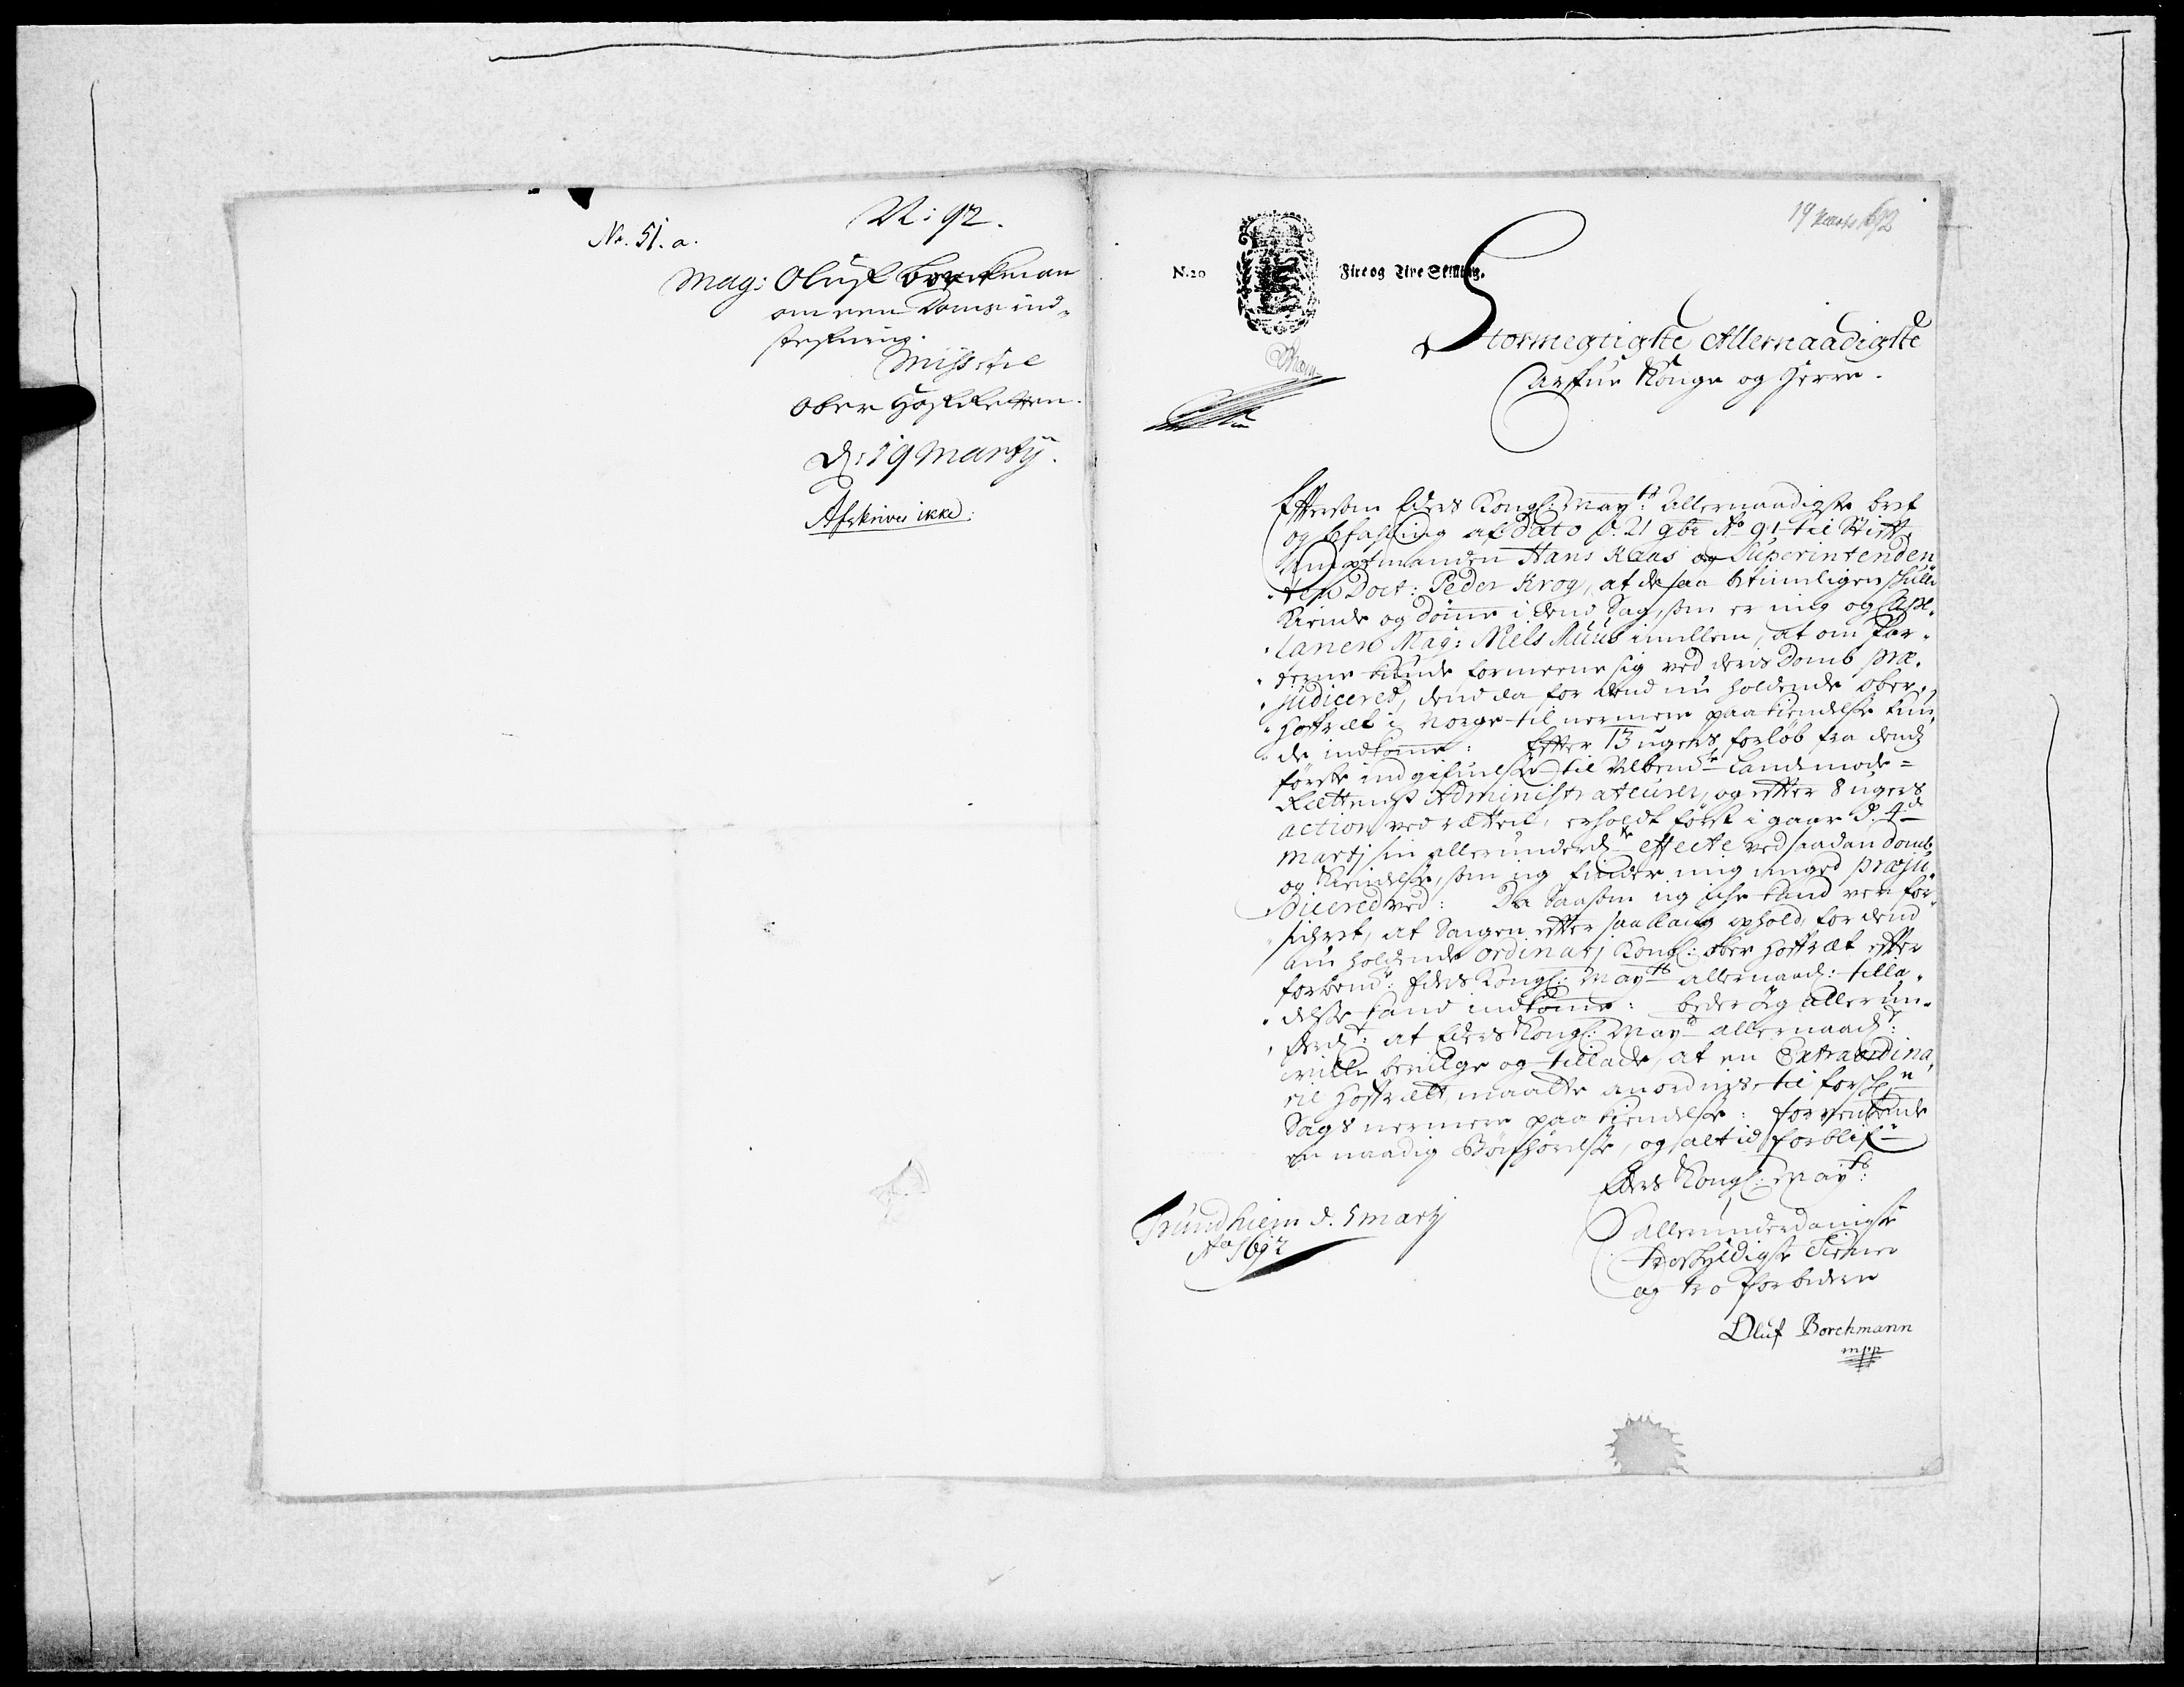 No. 51. a.
N: 92.
Mag: Oluf Borckman
om een Doms ind-
stefning.
Miss: til
Ober Hofretten.
D: 19 Martij.
Afskrives ikke.
19 Marts 1692
N. 20
Fire og Tive Skilling.
Stormegtigste Allernaadigste
Arffue Konge og Herre.
Eftersom Eders Kongl: Mayts allernaadigste bref
og befahling af dato d. 21 9br Ao 91 til Stift
Amptmanden Hans Kaas og Superintenden
ten Doct: Peder Krog, at de saa betimligen skulle
kiende og dømme i dend Sag, som er mig og Capel-
lanen Mag: Niels Muus imellem, at om Par-
terne kunde formeene sig ved deris Domb præ-
judicered, dend da for dend nu holdende Ober-
Hoffræt i Norge til nermere paakiendelse kun-
de indkomme: Efter 13 ugers forløb fra dends
første indgifvelse til Velbemte Landemode-
Rettens Administrateurer, og efter 8 ugers
action ved rætten, erholdt først i gaar d. 4de
Martij sin allerunderdte effecte ved saadan domb
og kiendelse, som ieg finder mig meged præju-
dicered ved: Da saasom ieg icke kand vere for-
sickret, at Sagen efter saa lang ophold, for dend
nu holdende ordinarj Kongl: Ober Hoffræt efter
forbemt: Eders Kongl: Mayts allernaad: tilla-
delse kand indkomme: beder ieg allerun-
derdt: at Eders Kongl: Mayt allernaadt:
ville bevilge og tillade, at en Extraordina-
ril Hoffrætt maatte anordnis til forschn
Sags nermere paakiendelse: forventende
en naadig Bønhørelse, og altid forblifr
Eders Kongl: Mayts:
Trundhiem d. 5 Martj
Ao 1692
allerunderdanigste
troskyldigste Tiener
og tro forbedere
Oluf Borchmann
mpp